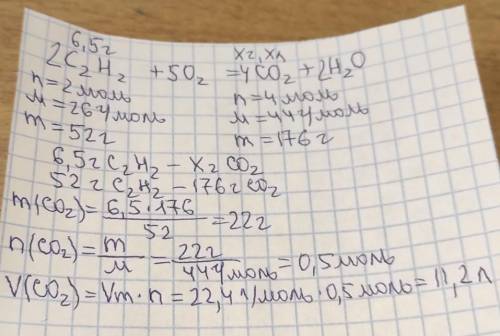 6,5г xг, xл
2C₂H₂ + 5O₂ = 4CO₂ + 2H₂O
n = 2 моль n = 4 моль
M = 26 г/моль M = 44 г/моль
m = 52 г m = 176 г
6,5 г C₂H₂ – x г CO₂
52 г C₂H₂ – 176 г CO₂
m(CO₂) = 6,5·176/52 = 22 г
n(CO₂) = m/M = 22 г/44 г/моль = 0,5 моль
V(CO₂) = Vm · n = 22,4 л/моль · 0,5 моль = 11,2 л